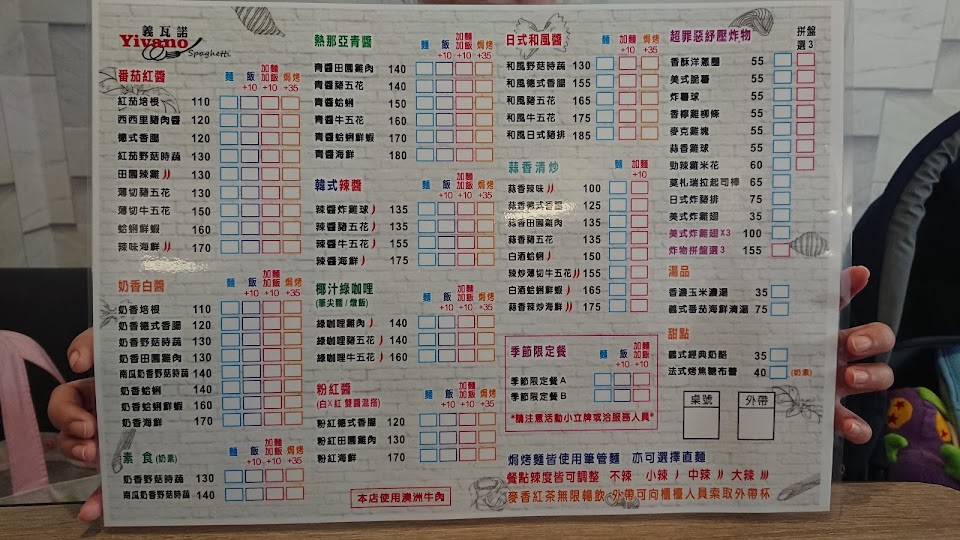 義瓦諾
Yivano
Spaghetti
番茄紅醬 麵 飯+10 加麵加飯+10 焗烤+35
紅茄培根 110
西西里豬肉醬 120
德式香腸 120
紅茄野菇時蔬 130
田園辣雞 130
薄切豬五花 130
薄切牛五花 150
蛤蜊鮮蝦 160
辣味海鮮 170
奶香白醬 麵 飯+10 加麵加飯+10 焗烤+35
奶香培根 110
奶香德式香腸 120
奶香野菇時蔬 130
奶香田園雞肉 130
南瓜奶香野菇時蔬 140
奶香蛤蜊 140
奶香蛤蜊鮮蝦 160
奶香海鮮 170
素食(奶素) 麵 飯+10 加麵加飯+10 焗烤+35
奶香野菇時蔬 130
南瓜奶香野菇時蔬 140
熱那亞青醬 麵 飯+10 加麵加飯+10 焗烤+35
青醬田園雞肉 140
青醬豬五花 140
青醬蛤蜊 150
青醬牛五花 160
青醬蛤蜊鮮蝦 170
青醬海鮮 180
韓式辣醬 麵 飯+10 加麵加飯+10 焗烤+35
辣醬炸雞球 135
辣醬豬五花 135
辣醬牛五花 155
辣醬海鮮 175
椰汁綠咖哩 麵 飯+10 加麵加飯+10 焗烤+35
(筆尖麵/燉飯)
綠咖哩雞肉 140
綠咖哩豬五花 140
綠咖哩牛五花 160
粉紅醬 麵 飯+10 加麵加飯+10 焗烤+35
(白X紅 雙醬混搭)
粉紅德式香腸 120
粉紅田園雞肉 130
粉紅海鮮 170
本店使用澳洲牛肉
日式和風醬 麵 加麵加飯+10 焗烤+50
和風野菇時蔬 130
和風德式香腸 155
和風豬五花 165
和風牛五花 175
和風日式豬排 185
蒜香清炒 麵 加麵+10
蒜香辣味 100
蒜香德式香腸 125
蒜香田園雞肉 135
蒜香豬五花 135
白酒蛤蜊 150
辣炒薄切牛五花 155
白酒蛤蜊鮮蝦 165
蒜香辣炒海鮮 175
季節限定餐 麵 飯+10 加麵加飯+10
季節限定餐A
季節限定餐B
*請注意活動小立牌或洽服務人員*
超罪惡紓壓炸物 拼盤選3
香酥洋蔥圈 55
美式脆薯 55
炸薯球 55
香檸雞柳條 55
麥克雞塊 55
蒜香雞球 55
勁辣雞米花 60
莫札瑞拉起司棒 65
日式炸豬排 75
美式炸雞翅 35
美式炸雞翅X3 100
炸物拼盤選3 155
湯品
香濃玉米濃湯 35
義式番茄海鮮清湯 75
甜點
義式經典奶酪 35
法式烤焦糖布蕾 40 (奶素)
桌號 外帶
焗烤麵皆使用筆管麵 亦可選擇直麵
餐點辣度皆可調整 不辣 小辣 中辣 大辣
麥香紅茶無限暢飲 外帶可向櫃檯人員索取外帶杯